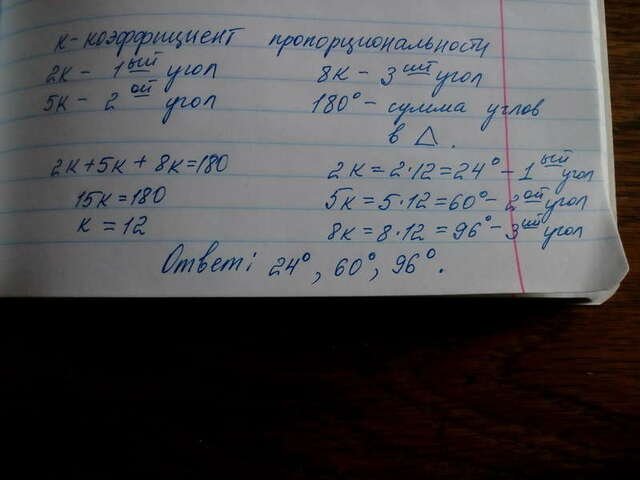 к - коэффициент пропорциональности
2к - 1ый угол 8к - 3ий угол
5к - 2ой угол 180° - сумма углов
в △.
2к+5к+8к=180 2к=2·12=24° - 1ый угол
15к=180 5к=5·12=60° - 2ой угол
к=12 8к=8·12=96° - 3ий угол
Ответ: 24°, 60°, 96°.